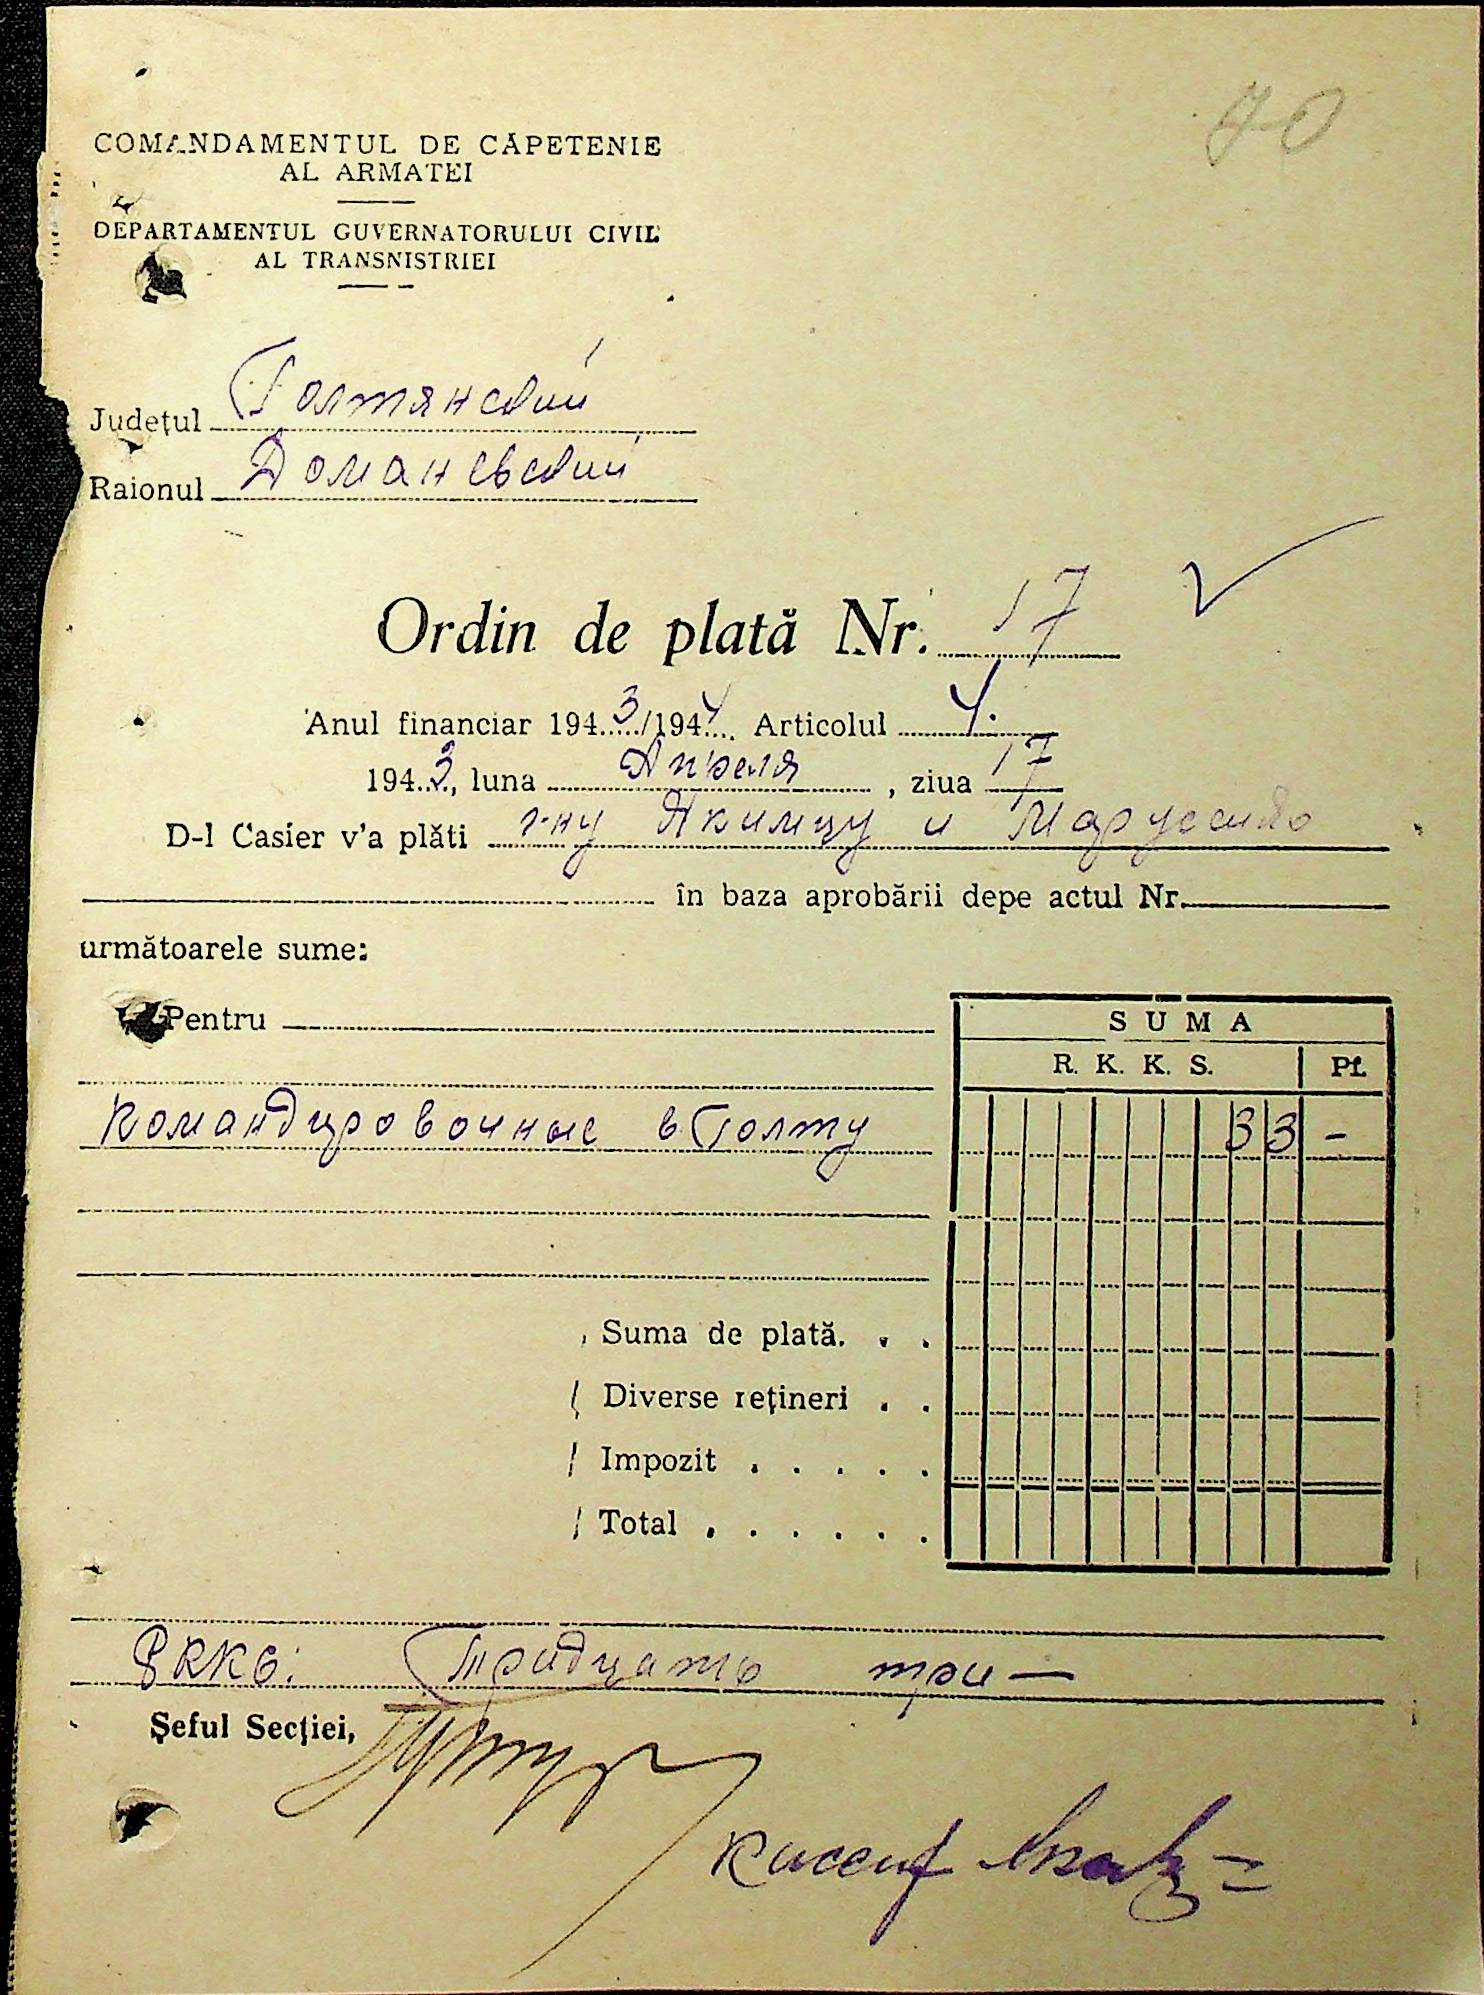 70
COMANDAMENTUL DE CĂPETENIE
AL ARMATEI
DEPARTAMENTUL GUVERNATORULUI CIVIL
AL TRANSNISTRIEI
Judeţul Голтянский
Raionul Доманевский
Ordin de plată Nr. 17
Anul financiar 1943/1944 Articolul 4.
1943, luna Апреля, ziua 17
D-l Casier v'a plăti г-ну Якимцу и
în baza aprobării depe actul Nr.
următoarele sume:
Pentru
SUMA
R. K. K. S. Pf.
Командировочные в Голту 33 -
Suma de plată. . .
Diverse reţineri . .
Impozit . . . . .
Total . . . . . .
РККС: Тридцать три —
Şeful Secţiei,